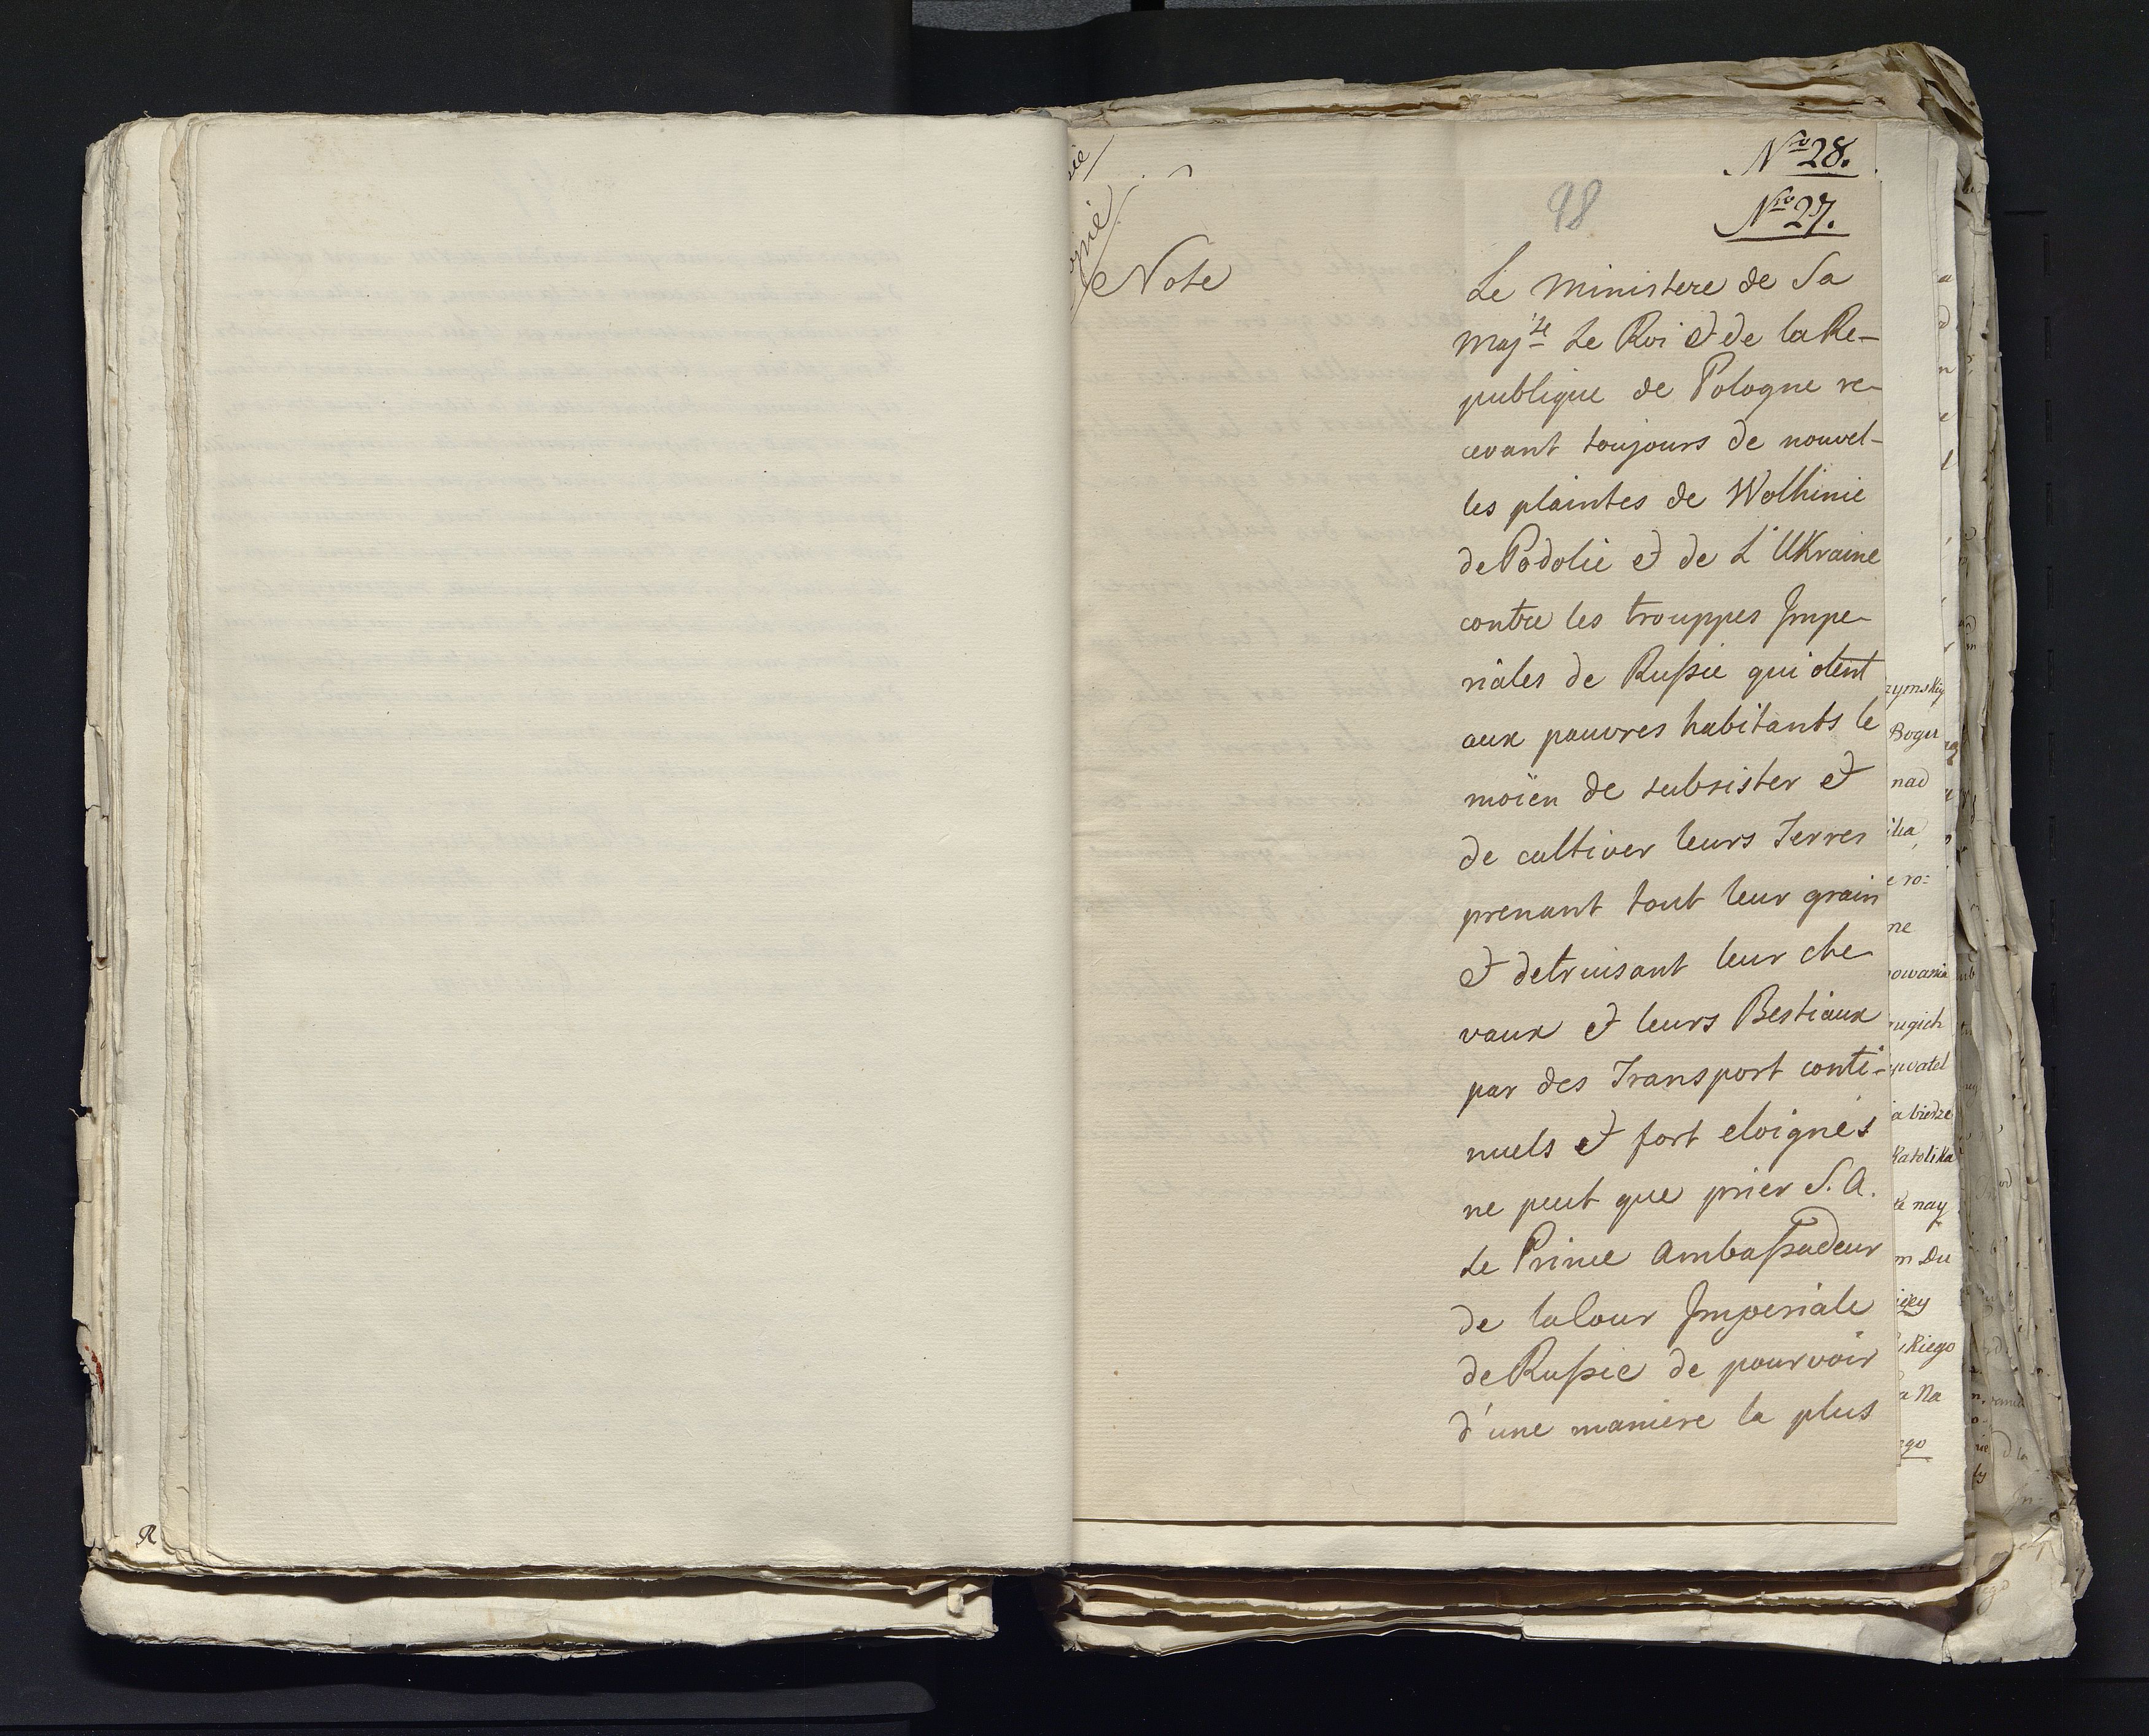 Nro 28.
98
Nro 27.
Note
Le Ministere de Sa
Majté Le Roi et de la Re-
publique de Pologne re-
cevant toujours de nouvel-
les plaintes de Wolhinie
de Podolie et de L'Ukraine
contre les trouppes Impe-
riales de Russie qui otent
aux pauvres habitants le
moïen de subsister et
de cultiver leurs Terres
prenant tout leur grain
et detruisant leur che-
vaux et leurs Bestiaux
par des Transport conti-
nuels et fort eloignés
ne peut que prier S. A.
Le Prince Ambassadeur
de la Cour Imperiale
de Russie de pourvoir
d'une maniere la plus
zymskiy
Bogu
nad
ne
katolika
nay
m Du
kiego
a Na